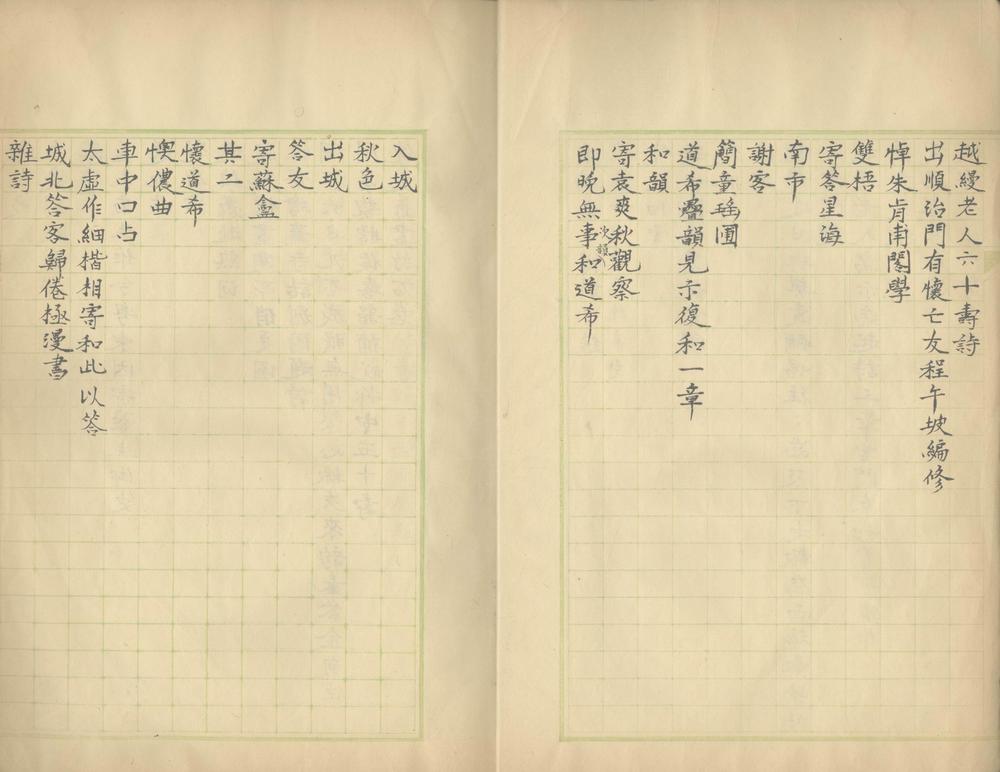 越縵老人六十壽詩
出順治門有懷亡友程午坡編修
悼朱肯甫閣學
雙梧
寄答星海
南市
謝客
簡童瑤圃
道希疊韻見示復和一章
和韻
寄袁爽秋觀察
次韻
即晚無事和道希
入城
秋色
出城
答友
寄蘇盦
其二
懷道希
懊儂曲
車中口占
太虛作細楷相寄和此以答
城北答客歸倦極漫書
雜詩